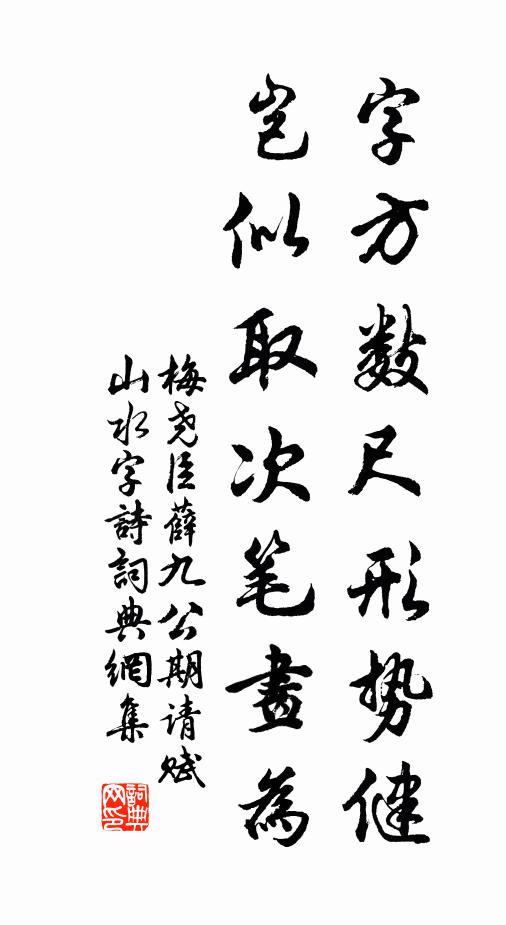 字方数尺形势健
岂似取次笔畫為
梅尧臣薛九公期请赋
山水字詩詞典網集
詞典
网印